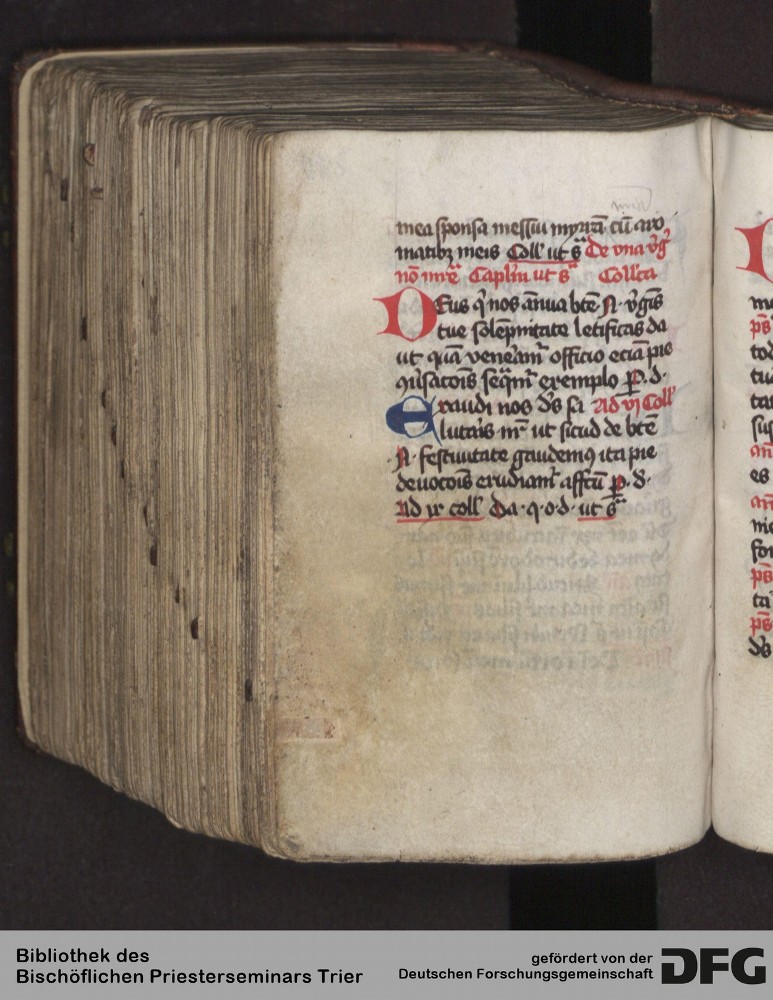 mea sponsa messui myrrā cū aro
matibꝫ meis Coll' ut sᵃ De una v̄g̅
nō mr̄e Capl'm ut sᵃ Coll'ca
Deus q̇ nos ānua bt̄e N. v̄gīs
tue solēpnitate letificas da
ut quā venerām̄ officio eciā pie
9ūsac̄ois seq̄m̄ exemplo ꝑ. d.
Exaudi nos d̄s sa Ad vj Coll'
lutaīs nr̄ ut sicud de bt̄e
N. festiuitate gaudemꝯ ita pie
deuoc̄ois erudiam̄ affc̄u ꝑ. d.
Ad ix coll' Da. q. o. d. ut sᵃ
p̄s
tod
tu
tat
sus
an̄
es
an̄
for
p̄s
ta
p̄s
d̄s
Bibliothek des
Bischöflichen Priesterseminars Trier
gefördert von der
Deutschen Forschungsgemeinschaft
DFG